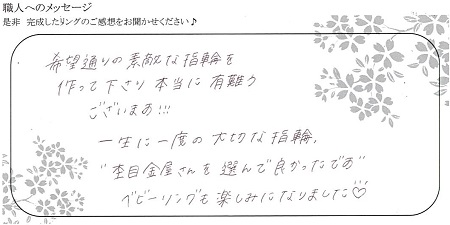 職人へのメッセージ
是非 完成したリングのご感想をお聞かせください♪
希望通りの素敵な指輪を
作って下さり本当に有難う
ございます!!!
一生に一度の大切な指輪、
"杢目金屋さんを選んで良かったです"
ベビーリングも楽しみになりました♡